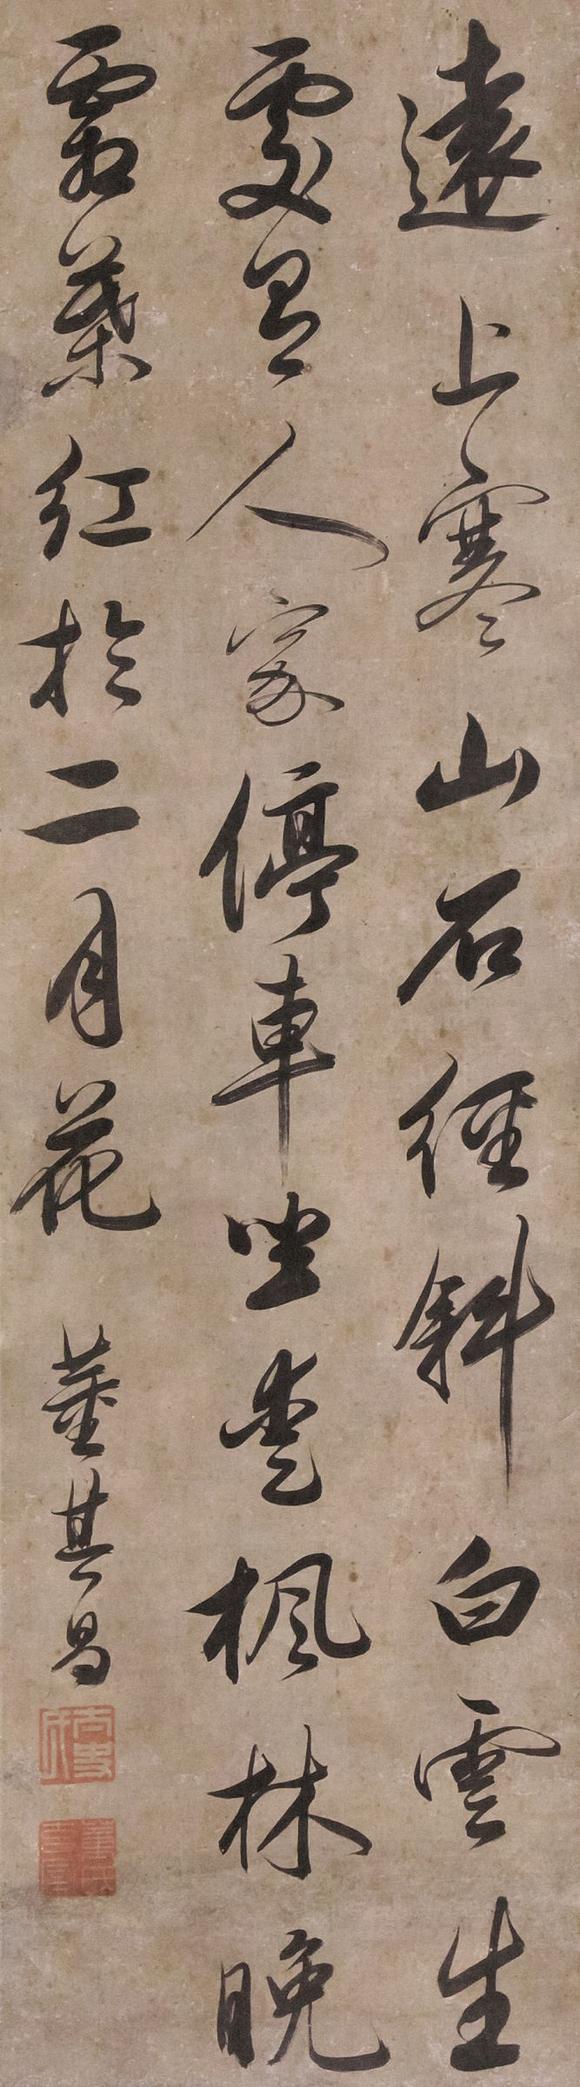 遠上寒山石徑斜白雲生
處有人家停車坐愛楓林晚
霜葉紅於二月花 董其昌
太史氏